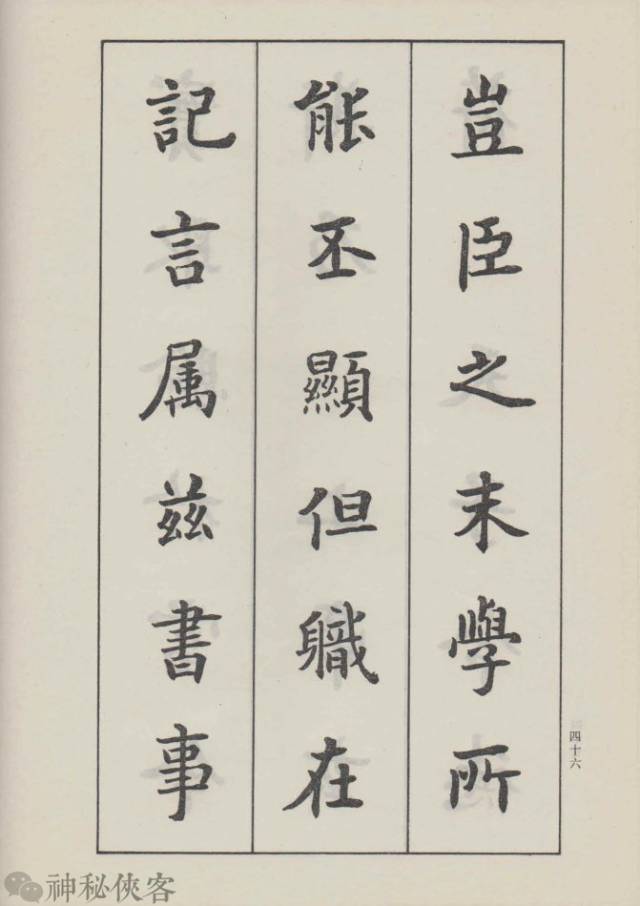 豈臣之末學所
能丕顯但職在
記言属兹書事
四十六
神秘俠客